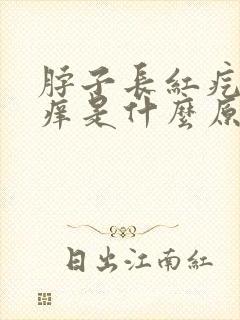 脖子長紅疙
癢是什麼原
日出江南紅